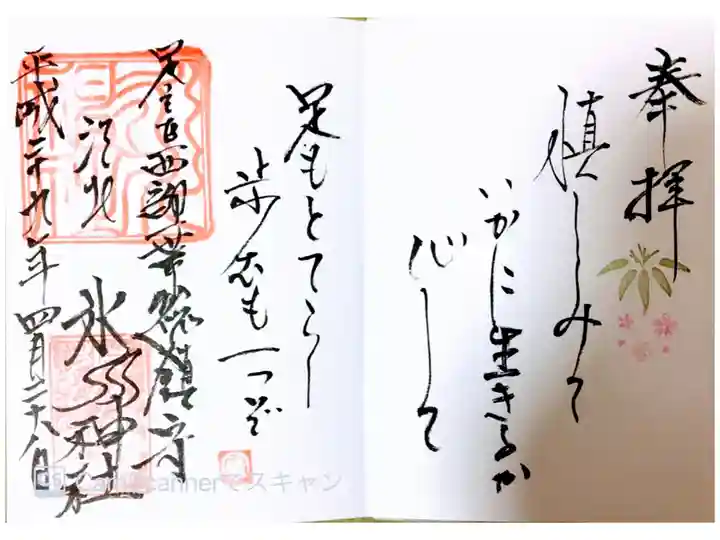 奉拝
慎しみて
いかに生きるか
心して
足もとてらし
歩むも一つぞ
足立区西
総鎮守
氷川神社
平成二十九年四月二十八日
CamScannerでスキャン